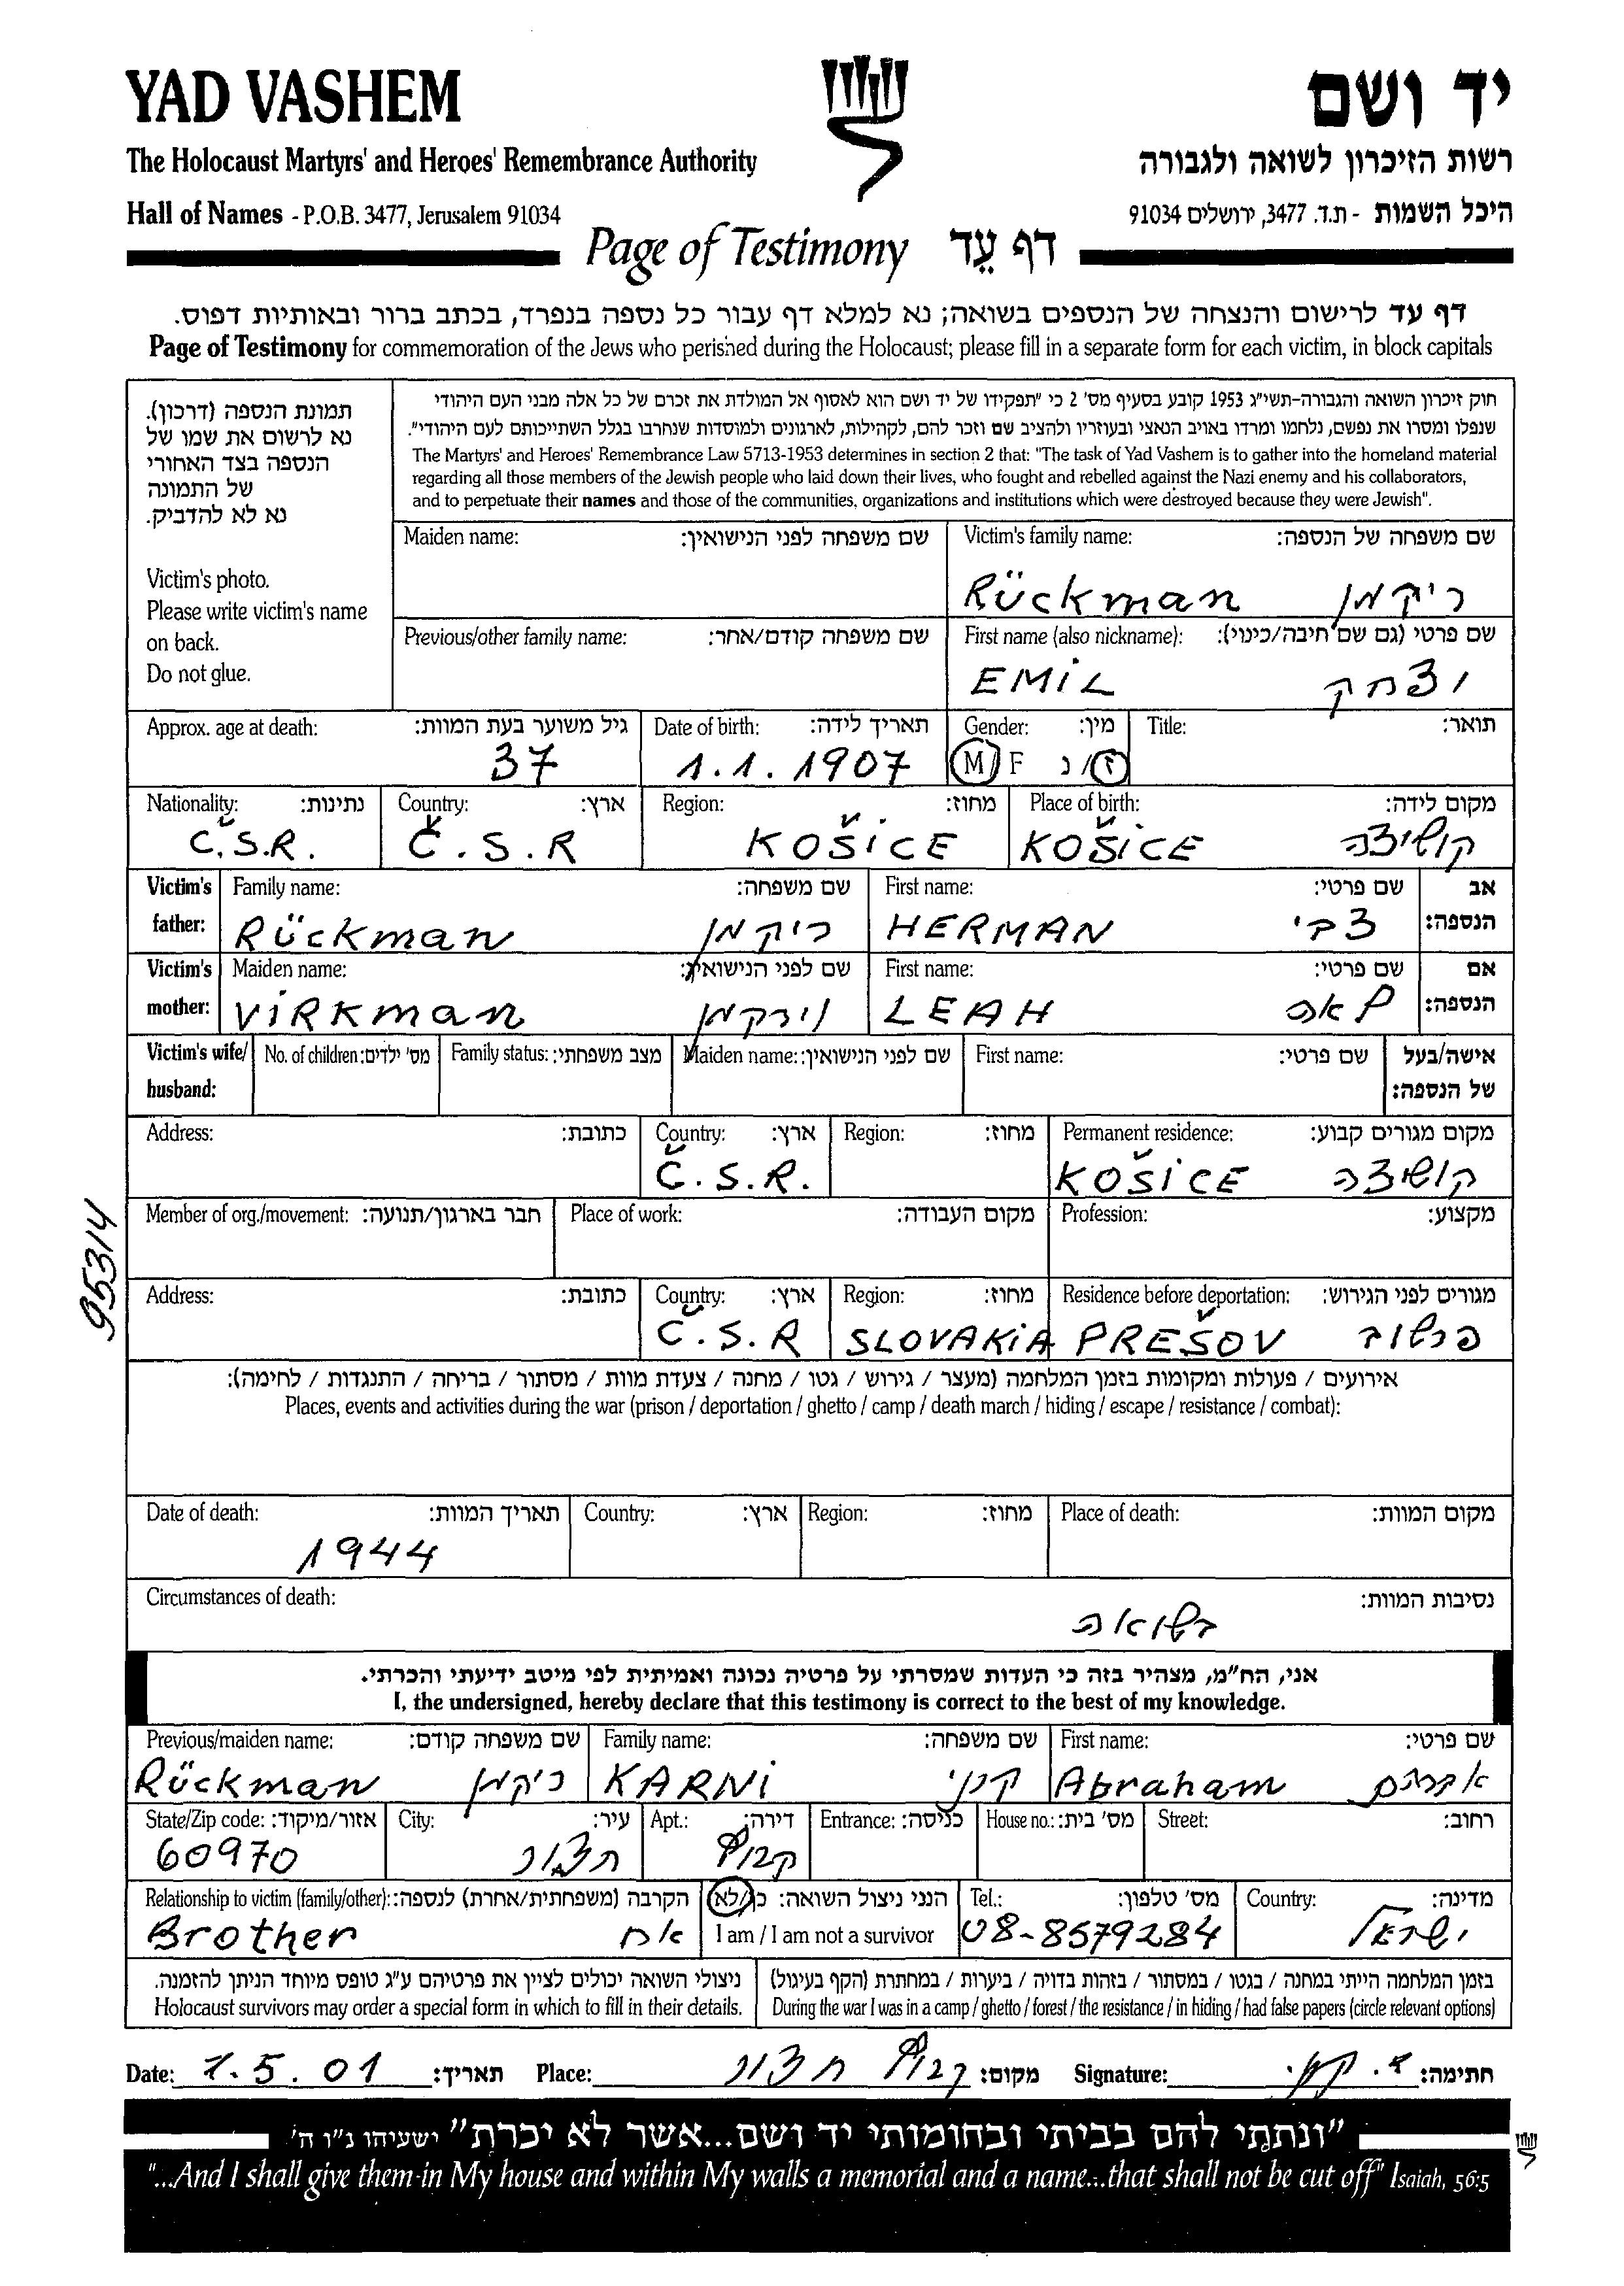 YAD VASHEM יד ושם
The Holocaust Martyrs' and Heroes' Remembrance Authority רשות הזיכרון לשואה ולגבורה
Hall of Names - P.O.B. 3477, Jerusalem 91034 היכל השמות - ת.ד. 3477, ירושלים 91034
Page of Testimony דף עֵד
דף עד לרישום והנצחה של הנספים בשואה; נא למלא דף עבור כל נספה בנפרד, בכתב ברור ובאותיות דפוס.
Page of Testimony for commemoration of the Jews who perished during the Holocaust; please fill in a separate form for each victim, in block capitals
תמונת הנספה (דרכון).
נא לרשום את שמו של
הנספה בצד האחורי
של התמונה
נא לא להדביק.
Victim's photo.
Please write victim's name
on back.
Do not glue.
חוק זיכרון השואה והגבורה-תשי"ג 1953 קובע בסעיף מס' 2 כי "תפקידו של יד ושם הוא לאסוף אל המולדת את זכרם של כל אלה מבני העם היהודי
שנפלו ומסרו את נפשם, נלחמו ומרדו באויב הנאצי ובעוזריו ולהציב שם וזכר להם, לקהילות, לארגונים ולמוסדות שנחרבו בגלל השתייכותם לעם היהודי".
The Martyrs' and Heroes' Remembrance Law 5713-1953 determines in section 2 that: "The task of Yad Vashem is to gather into the homeland material
regarding all those members of the Jewish people who laid down their lives, who fought and rebelled against the Nazi enemy and his collaborators,
and to perpetuate their names and those of the communities, organizations and institutions which were destroyed because they were Jewish".
Maiden name: שם משפחה לפני הנישואין: Victim's family name: שם משפחה של הנספה:
Rückman ריקמן
Previous/other family name: שם משפחה קודם/אחר: First name (also nickname): שם פרטי (גם שם חיבה/כינוי):
EMIL יצחק
Approx. age at death: גיל משוער בעת המוות: Date of birth: תאריך לידה: Gender: מין: Title: תואר:
37 1.1.1907 M/F ז/נ
Nationality: נתינות: Country: ארץ: Region: מחוז: Place of birth: מקום לידה:
Č.S.R. Č.S.R KOŠICE KOŠICE קושיצה
Victim's father: Family name: שם משפחה: First name: שם פרטי: אב הנספה:
Rückman ריקמן HERMAN צבי
Victim's mother: Maiden name: שם לפני הנישואין: First name: שם פרטי: אם הנספה:
VIRKman וירקמן LEAH לאה
Victim's wife/ husband: No. of children: מס' ילדים: Family status: מצב משפחתי: Maiden name: שם לפני הנישואין: First name: שם פרטי: אישה/בעל של הנספה:
Address: כתובת: Country: ארץ: Region: מחוז: Permanent residence: מקום מגורים קבוע:
Č.S.R. KOŠICE קושיצה
Member of org./movement: חבר בארגון/תנועה: Place of work: מקום העבודה: Profession: מקצוע:
95314
Address: כתובת: Country: ארץ: Region: מחוז: Residence before deportation: מגורים לפני הגירוש:
Č.S.R SLOVAKIA PREŠOV פרשוב
אירועים / פעולות ומקומות בזמן המלחמה (מעצר / גירוש / גטו / מחנה / צעדת מוות / מסתור / בריחה / התנגדות / לחימה):
Places, events and activities during the war (prison / deportation / ghetto / camp / death march / hiding / escape / resistance / combat):
Date of death: תאריך המוות: Country: ארץ: Region: מחוז: Place of death: מקום המוות:
1944
Circumstances of death: נסיבות המוות:
בשואה
אני, הח"מ, מצהיר בזה כי העדות שמסרתי על פרטיה נכונה ואמיתית לפי מיטב ידיעתי והכרתי.
I, the undersigned, hereby declare that this testimony is correct to the best of my knowledge.
Previous/maiden name: שם משפחה קודם: Family name: שם משפחה: First name: שם פרטי:
Rückman ריקמן KARNI קרני Abraham אברהם
State/Zip code: אזור/מיקוד: City: עיר: Apt.: דירה: Entrance: כניסה: House no.: מס' בית: Street: רחוב:
60970 חצור קבוץ
Relationship to victim (family/other): הקרבה (משפחתית/אחרת) לנספה: הנני ניצול השואה: כן/לא Tel.: מס' טלפון: Country: מדינה:
Brother אח I am / I am not a survivor 08-8579284 ישראל
ניצולי השואה יכולים לציין את פרטיהם ע"ג טופס מיוחד הניתן להזמנה. בזמן המלחמה הייתי במחנה / בגטו / במסתור / בזהות בדויה / ביערות / במחתרת (הקף בעיגול)
Holocaust survivors may order a special form in which to fill in their details. During the war I was in a camp / ghetto / forest / the resistance / in hiding / had false papers (circle relevant options)
Date: 1.5.01 תאריך: Place: קבוץ חצור מקום: Signature: א. קרני חתימה:
"ונתתי להם בביתי ובחומותי יד ושם...אשר לא יכרת" ישעיהו נ"ו ה'
"...And I shall give them in My house and within My walls a memorial and a name...that shall not be cut off" Isaiah, 56:5